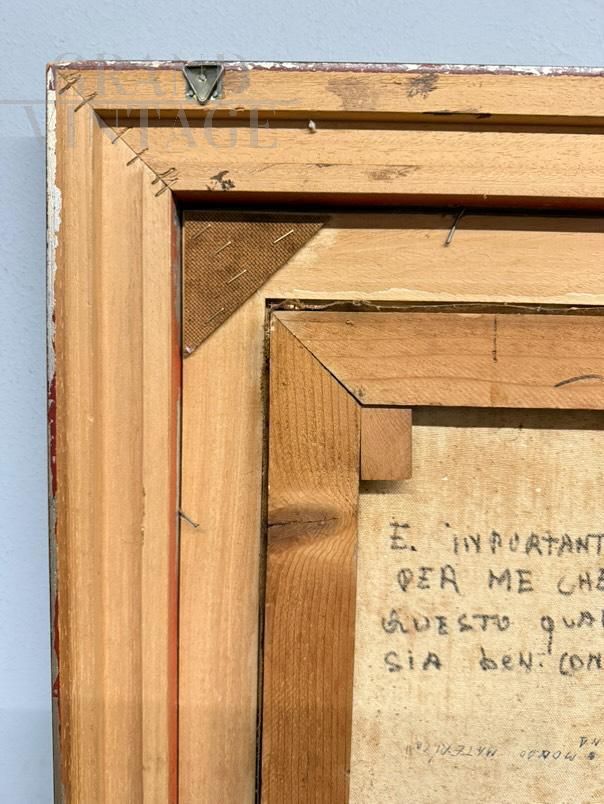 GRAND
VINTAGE
E. INPORTANT
PER ME CHE
QUESTO QUA
SIA bEN. CON
MONDO MATERICO"